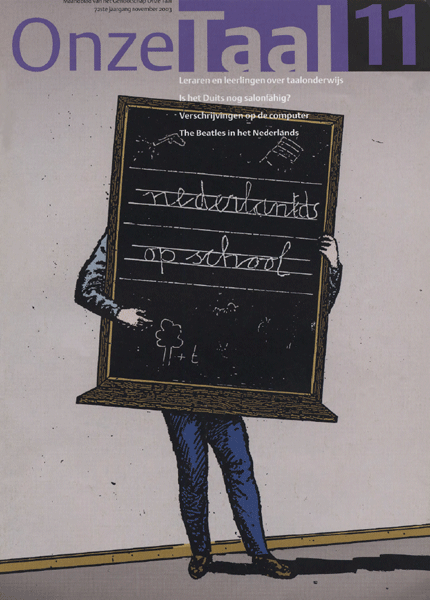 Maandblad van het Genootschap Onze Taal
72ste jaargang november 2003
OnzeTaal 11
Leraren en leerlingen over taalonderwijs
Is het Duits nog salonfähig?
Verschrijvingen op de computer
The Beatles in het Nederlands
nederlantds
op school
+ t